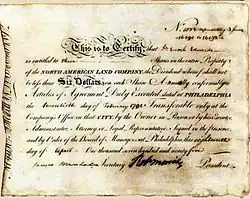 This is to Certify that
is entitled to three Shares in the entire Property
of the NORTH AMERICAN LAND COMPANY, the Dividend whereof shall not
be less than Six Dollars on each Share Annually, conformably to
Articles of Agreement Duly Executed, dated at PHILADELPHIA
the twentieth day of February 1795, Transferable only at the
Company's Office in that CITY, by the Owner in Person or by his Executor
Administrator, Attorney or Legal Representative. Signed in the Presence
and by Order of the Board of Managers, at Philadelphia this
day of April One thousand seven hundred and ninety five
James Marshall Secretary Rob Morris President